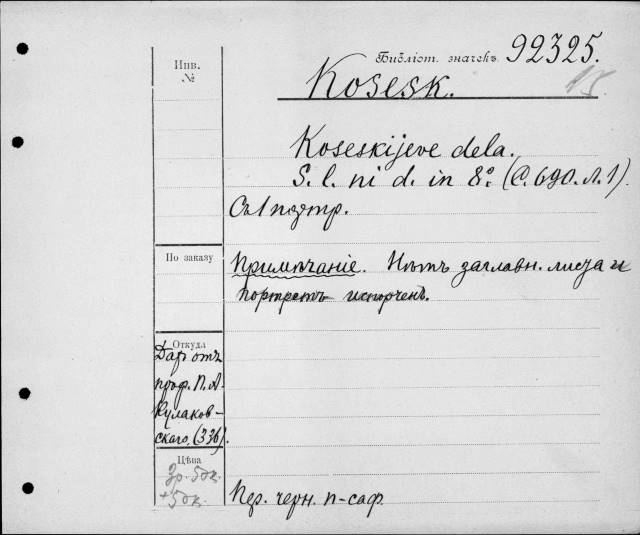 Инв.
№
Библіот. значекъ 92325.
Kosesk.
Koseskijeve dela.
S. l. ni d. in 8º. (С. 690. Л. 1).
Съ 1 портр.
По заказу
Примѣчаніе. Нѣтъ заглавн. листа и
портретъ испорченъ.
Откуда
Даръ отъ
проф. П. А.
Кулаков-
скаго. (336).
Цѣна
3р. 50к.
+50к.
Пер. черн. п-саф.